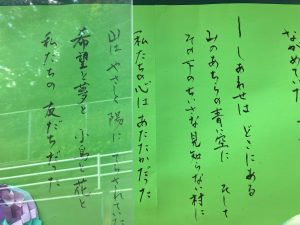 ながめていた
――しあわせは どこにある
山のあちらの青い空に そして
その下のちいさな見知らない村に
私たちの心は あたたかだった
山は やさしく 陽に てらされていた
希望と夢と 小鳥と花と
私たちの 友だちだった